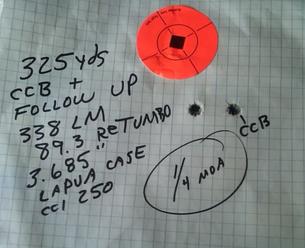 325 yds
CCB +
FOLLOW UP
338 LM
89.3 RETUMBO
3.685"
LAPUA CASE
CCI 250
CCB
1/4 MOA